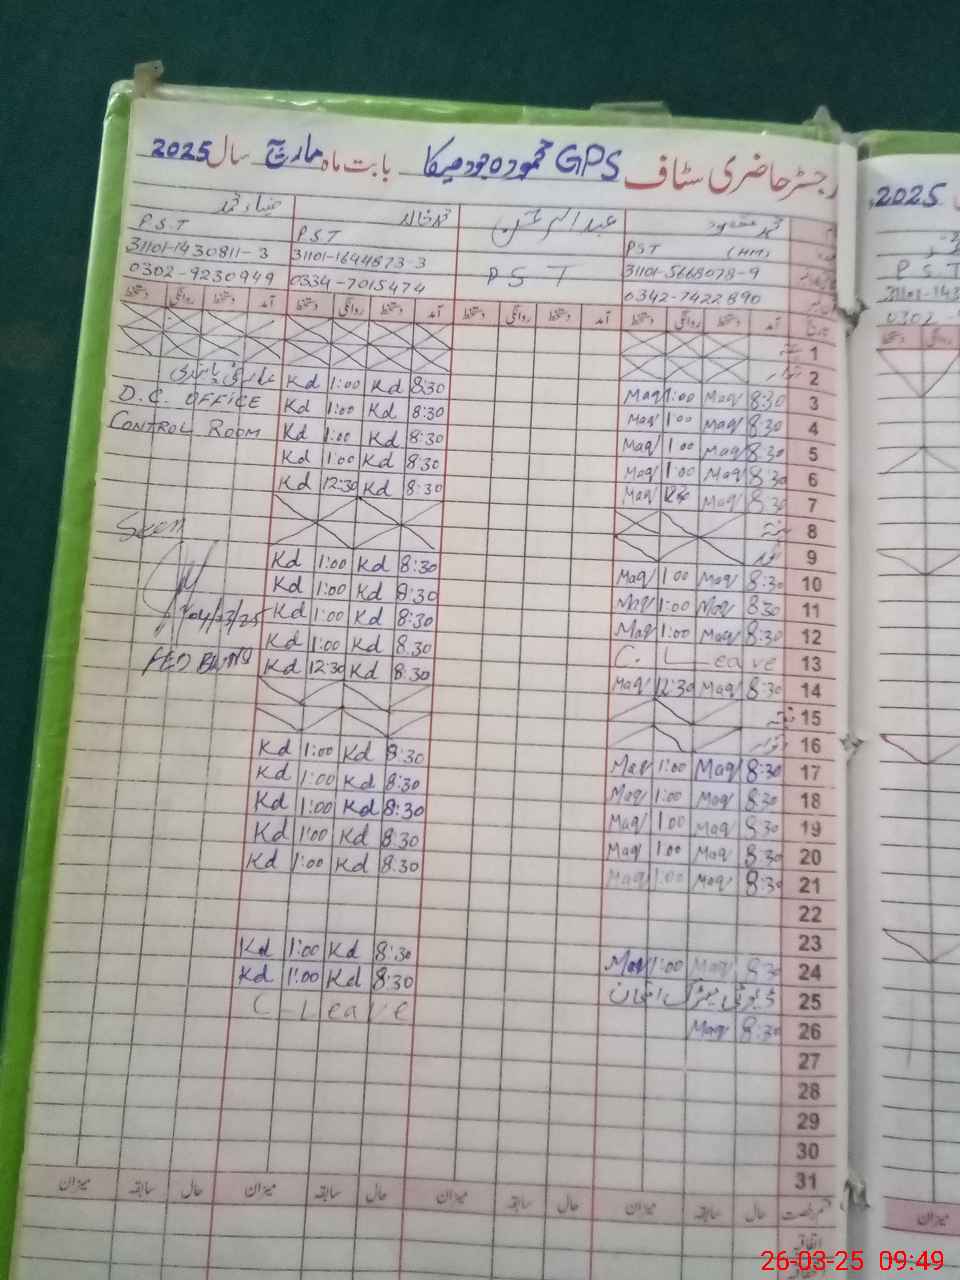 رجسٹر حاضری سٹاف GPS محمودہ جودھیکا بابت ماہ مارچ سال 2025
محمد مقصود عبدالرحمٰن محمد خالد ضیاء محمد
PST (HM) PST PST P.S.T
31101-5668078-9 31101-1644873-3 31101-1430811-3
0342-7422890 0334-7015474 0302-9230949
آمد دستخط روانگی دستخط آمد دستخط روانگی دستخط آمد دستخط روانگی دستخط آمد دستخط روانگی دستخط
1
2
Kd 1:00 Kd 8:30 Maq 1:00 Maq 8:30 3
D.C. OFFICE Kd 1:00 Kd 8:30 Maq 1:00 Maq 8:30 4
CONTROL ROOM Kd 1:00 Kd 8:30 Maq 1:00 Maq 8:30 5
Kd 1:00 Kd 8:30 Maq 1:00 Maq 8:30 6
Kd 12:30 Kd 8:30 Maq Maq 8:30 7
Seen 8
9
Kd 1:00 Kd 8:30 Maq 1:00 Maq 8:30 10
Kd 1:00 Kd 8:30 Maq 1:00 Maq 8:30 11
Kd 1:00 Kd 8:30 Maq 1:00 Maq 8:30 12
Kd 1:00 Kd 8:30 C. Leave 13
Kd 12:30 Kd 8:30 Maq 12:30 Maq 8:30 14
15
16
Kd 1:00 Kd 8:30 Maq 1:00 Maq 8:30 17
Kd 1:00 Kd 8:30 Maq 1:00 Maq 8:30 18
Kd 1:00 Kd 8:30 Maq 1:00 Maq 8:30 19
Kd 1:00 Kd 8:30 Maq 1:00 Maq 8:30 20
Kd 1:00 Kd 8:30 Maq 1:00 Maq 8:30 21
22
23
Kd 1:00 Kd 8:30 Maq 1:00 Maq 8:30 24
Kd 1:00 Kd 8:30 ڈیوٹی میٹرک امتحان 25
C Leave Maq 8:30 26
27
28
29
30
31
حال سابقہ میزان حال سابقہ میزان حال سابقہ میزان حال سابقہ میزان
اتفاقیہ
2025
P.S.T
میزان
26-03-25 09:49